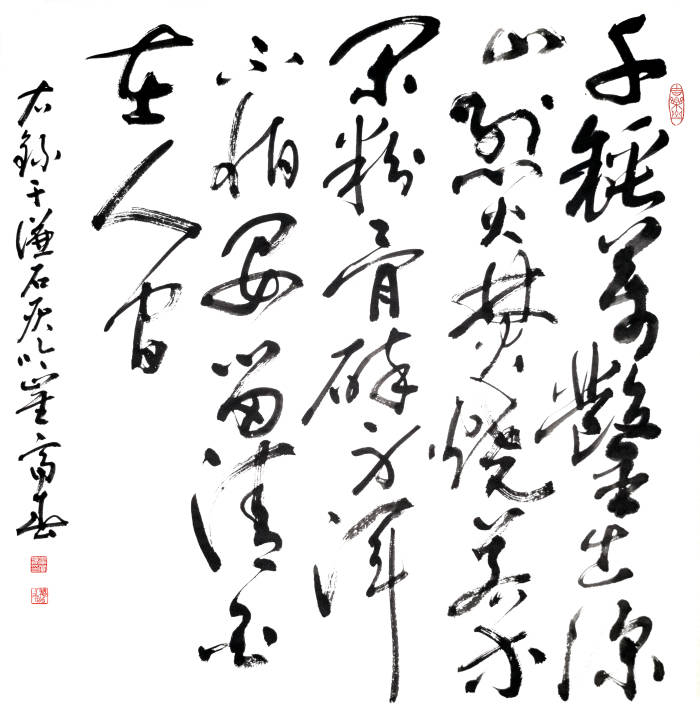 千錘萬鑿出深
山烈火焚燒若等
閑粉骨碎身渾
不怕要留清白
在人間
右錄于謙石灰吟崔富春